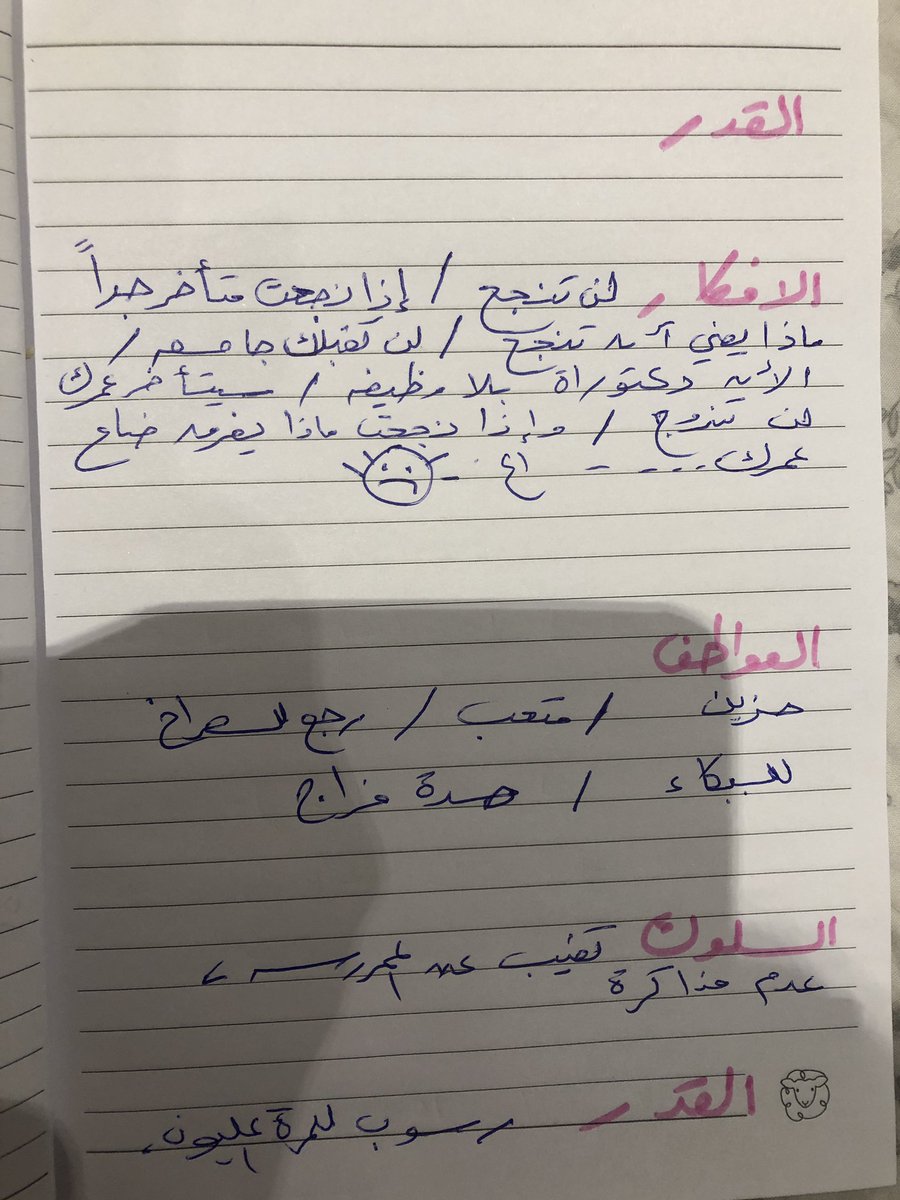 القدر
الافكار لن تنجح / إذا نجحت متأخر جداً
ماذا يعني أن تنجح / لن تقبلك جامعه /
الأن دكتوراة بلا وظيفه / سيتأخر عمرك
لن تتزوج / وإذا نجحت ماذا يفرق ضاع
عمرك .... - - اع
العواطف
حزين / متعب / رجع للصراخ
للبكاء / حدة مزاج
السلوك تغيب عن المدرسه ،
عدم مذاكرة
القدر رسوب للمرة المليون.